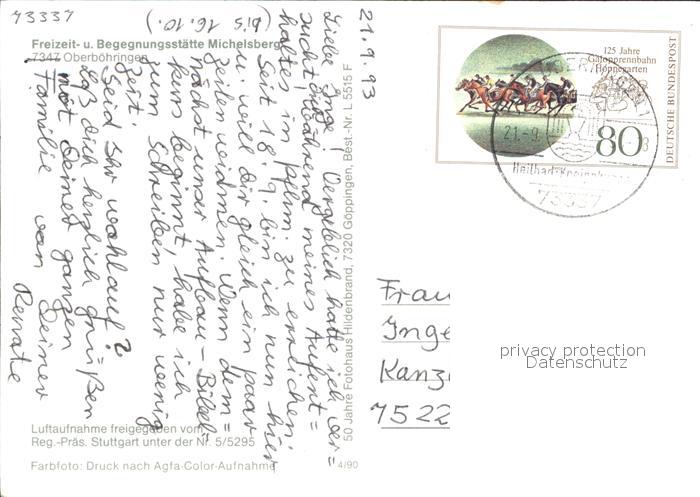 73337
(bis 16.10.)
Freizeit- u. Begegnungsstätte Michelsberg
7347 Oberböhringen
21.9.93
Liebe Inge! Vergeblich hatte ich ver=
sucht, während meines Aufent=
haltes im Pflhm. zu erreichen.
Seit 18.9. bin ich nun hier
u. will Dir gleich ein paar
Zeilen widmen. Wenn dem=
nächst unser Aufbau-Bibel=
kurs beginnt, habe ich
zum Schreiben nur wenig
Zeit.
Seid Ihr wohlauf?
Laß dich herzlich grü=ßen
mit Deiner ganzen
Familie von Deiner
Renate
50 Jahre Fotohaus Hildenbrand, 7320 Göppingen, Best.-Nr. L 5515 F
Luftaufnahme freigegeben vom
Reg.-Präs. Stuttgart unter der Nr. 5/5295
Farbfoto: Druck nach Agfa-Color-Aufnahme
4/90
125 Jahre
Galopprennbahn
Hoppegarten
80
DEUTSCHE BUNDESPOST
21.-9
Heilbad
73337
Frau
Inge
Kanz
7522
privacy protection
Datenschutz